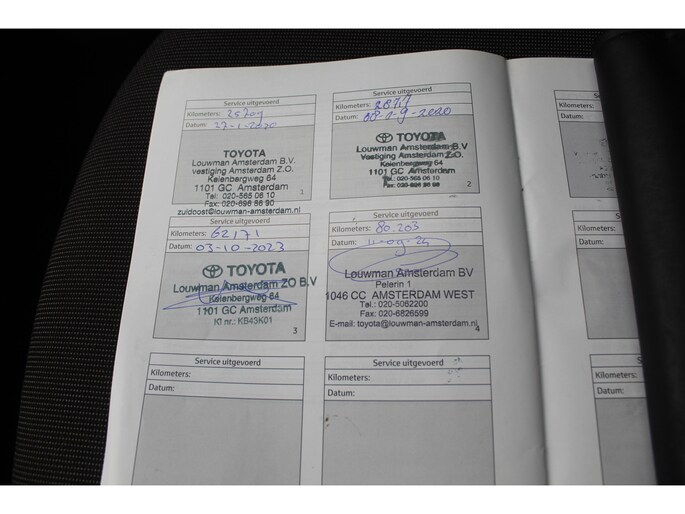 Service uitgevoerd
Kilometers:
Datum: 27-1-2020
TOYOTA
Louwman Amsterdam B.V.
Vestiging Amsterdam Z.O.
Keienbergweg 64
1101 GC Amsterdam
Tel: 020-565 06 10
Fax: 020-696 86 90
zuidoost@louwman-amsterdam.nl
1
Service uitgevoerd
Kilometers:
Datum: 2020
TOYOTA
Louwman Amsterdam B.V.
Vestiging Amsterdam Z.O.
Keienbergweg 64
1101 GC Amsterdam
Tel.: 020-565 06 10
Fax: 020-696 86 90
2
Service uitgevoerd
Kilometers: 62171
Datum: 03-10-2023
TOYOTA
Louwman Amsterdam ZO B.V
Keienbergweg 64
1101 GC Amsterdam
Kl nr.: KB43K01
3
Service uitgevoerd
Kilometers: 80.203
Datum: 11-09-24
Louwman Amsterdam BV
Pelerin 1
1046 CC AMSTERDAM WEST
Tel.: 020-5062200
Fax: 020-6826599
E-mail: toyota@louwman-amsterdam.nl
4
Service uitgevoerd
Kilometers:
Datum:
Service uitgevoerd
Kilometers:
Datum:
Kilometers:
Datum:
Kilometers:
Datum:
Kilometers:
Datum: